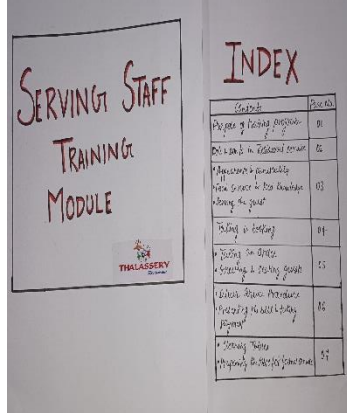 SERVING STAFF
TRAINING
MODULE
THALASSERY
INDEX
Contents
Page No.
Purpose of training program
01
in Restaurant service
02
• Appearance & punctuality
• Food Service &
Knowledge
• Serving the guest
03
Taking a booking
04
• Taking an Order
• Greeting & Seating guests
05
Service Procedure
• Presenting the bill & taking
payment
06
• Clearing Tables
• Preparing
07